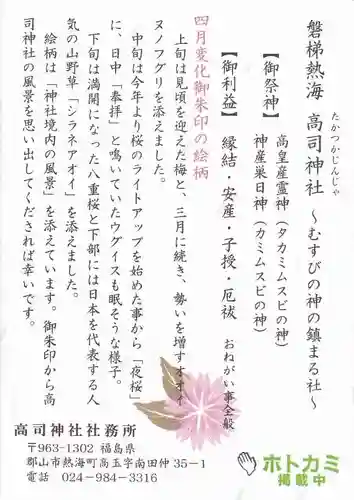 磐梯熱海 高司神社 ～むすびの神の鎮まる社～
たかつかじんじゃ
【御祭神】 高皇産霊神（タカミムスビの神）
神産巣日神（カミムスビの神）
【御利益】 縁結・安産・子授・厄祓 おねがい事全般
四月変化御朱印の絵柄
上旬は見頃を迎えた梅と、三月に続き、勢いを増すオオイ
ヌノフグリを添えました。
中旬は今年より桜のライトアップを始めた事から「夜桜」
に、日中「奉拝」と鳴いていたウグイスも眠そうな様子。
下旬は満開になった八重桜と下部には日本を代表する人
気の山野草「シラネアオイ」を添えました。
絵柄は「神社境内の風景」を添えています。御朱印から高
司神社の風景を思い出してくだされば幸いです。
高司神社社務所
〒963-1302 福島県
郡山市熱海町高玉字南田仲35－1
電話 024-984-3316
ホトカミ
掲載中